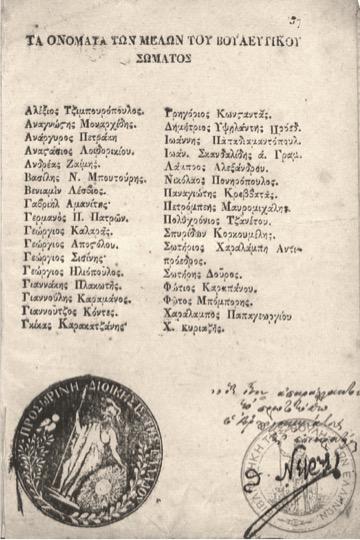 57
ΤΑ ΟΝΟΜΑΤΑ ΤΩΝ ΜΕΛΩΝ ΤΟΥ ΒΟΥΛΕΥΤΙΚΟΥ
ΣΩΜΑΤΟΣ
Αλέξιος Τζιμπουρόπουλος.
Αναγνώςης Μοναρχίδης.
Ανάργυρος Πετράκη
Αναςάσιος Λοιδορικίου.
Ανδρέας Ζαΐμης.
Βασίλης Ν. Μπουτούρης.
Βενιαμὶν Λέσβιος.
Γαβριὴλ Αμανίτης
Γερμανὸς Π. Πατρῶν.
Γεώργιος Καλαρᾶς.
Γεώργιος Αποςόλου.
Γεώργιος Σισίνης
Γεώργιος Ηλιόπουλος.
Γιαννάκης Πλακωτῆς.
Γιαννούλης Καραμάνος.
Γιαννούτζος Κόντες.
Γκίκας Καρακατζάνης
Γρηγόριος Κωνςαντᾶς.
Δημήτριος Υψηλάντης Πρόεδ.
Ιωάννης Παπαδιαμαντόπουλ.
Ιωάν. Σκανδαλίδης ά. Γραμ.
Λάμπρος Αλεξάνδρου.
Νικόλαος Πονηρόπουλος.
Παναγιώτης Κρεββατᾶς.
Πετρόμπεης Μαυρομιχάλης.
Πολυχρόνιος Τζανέτου.
Σπυρίδων Κορκουμέλης.
Σωτήριος Χαραλάμπη Αντι-
πρόεδρος.
Σωτήρης Δοῦρος.
Φώτιος Καραπάνου.
Φῶτος Μπόμπορης.
Χαράλαμπος Παπαγεωργίου
Χ. κυριαζῆς.
ΠΡΟΣΩΡΙΝΗ ΔΙΟΙΚΗΣΙΣ ΤΗΣ ΕΛΛΑΔΟΣ